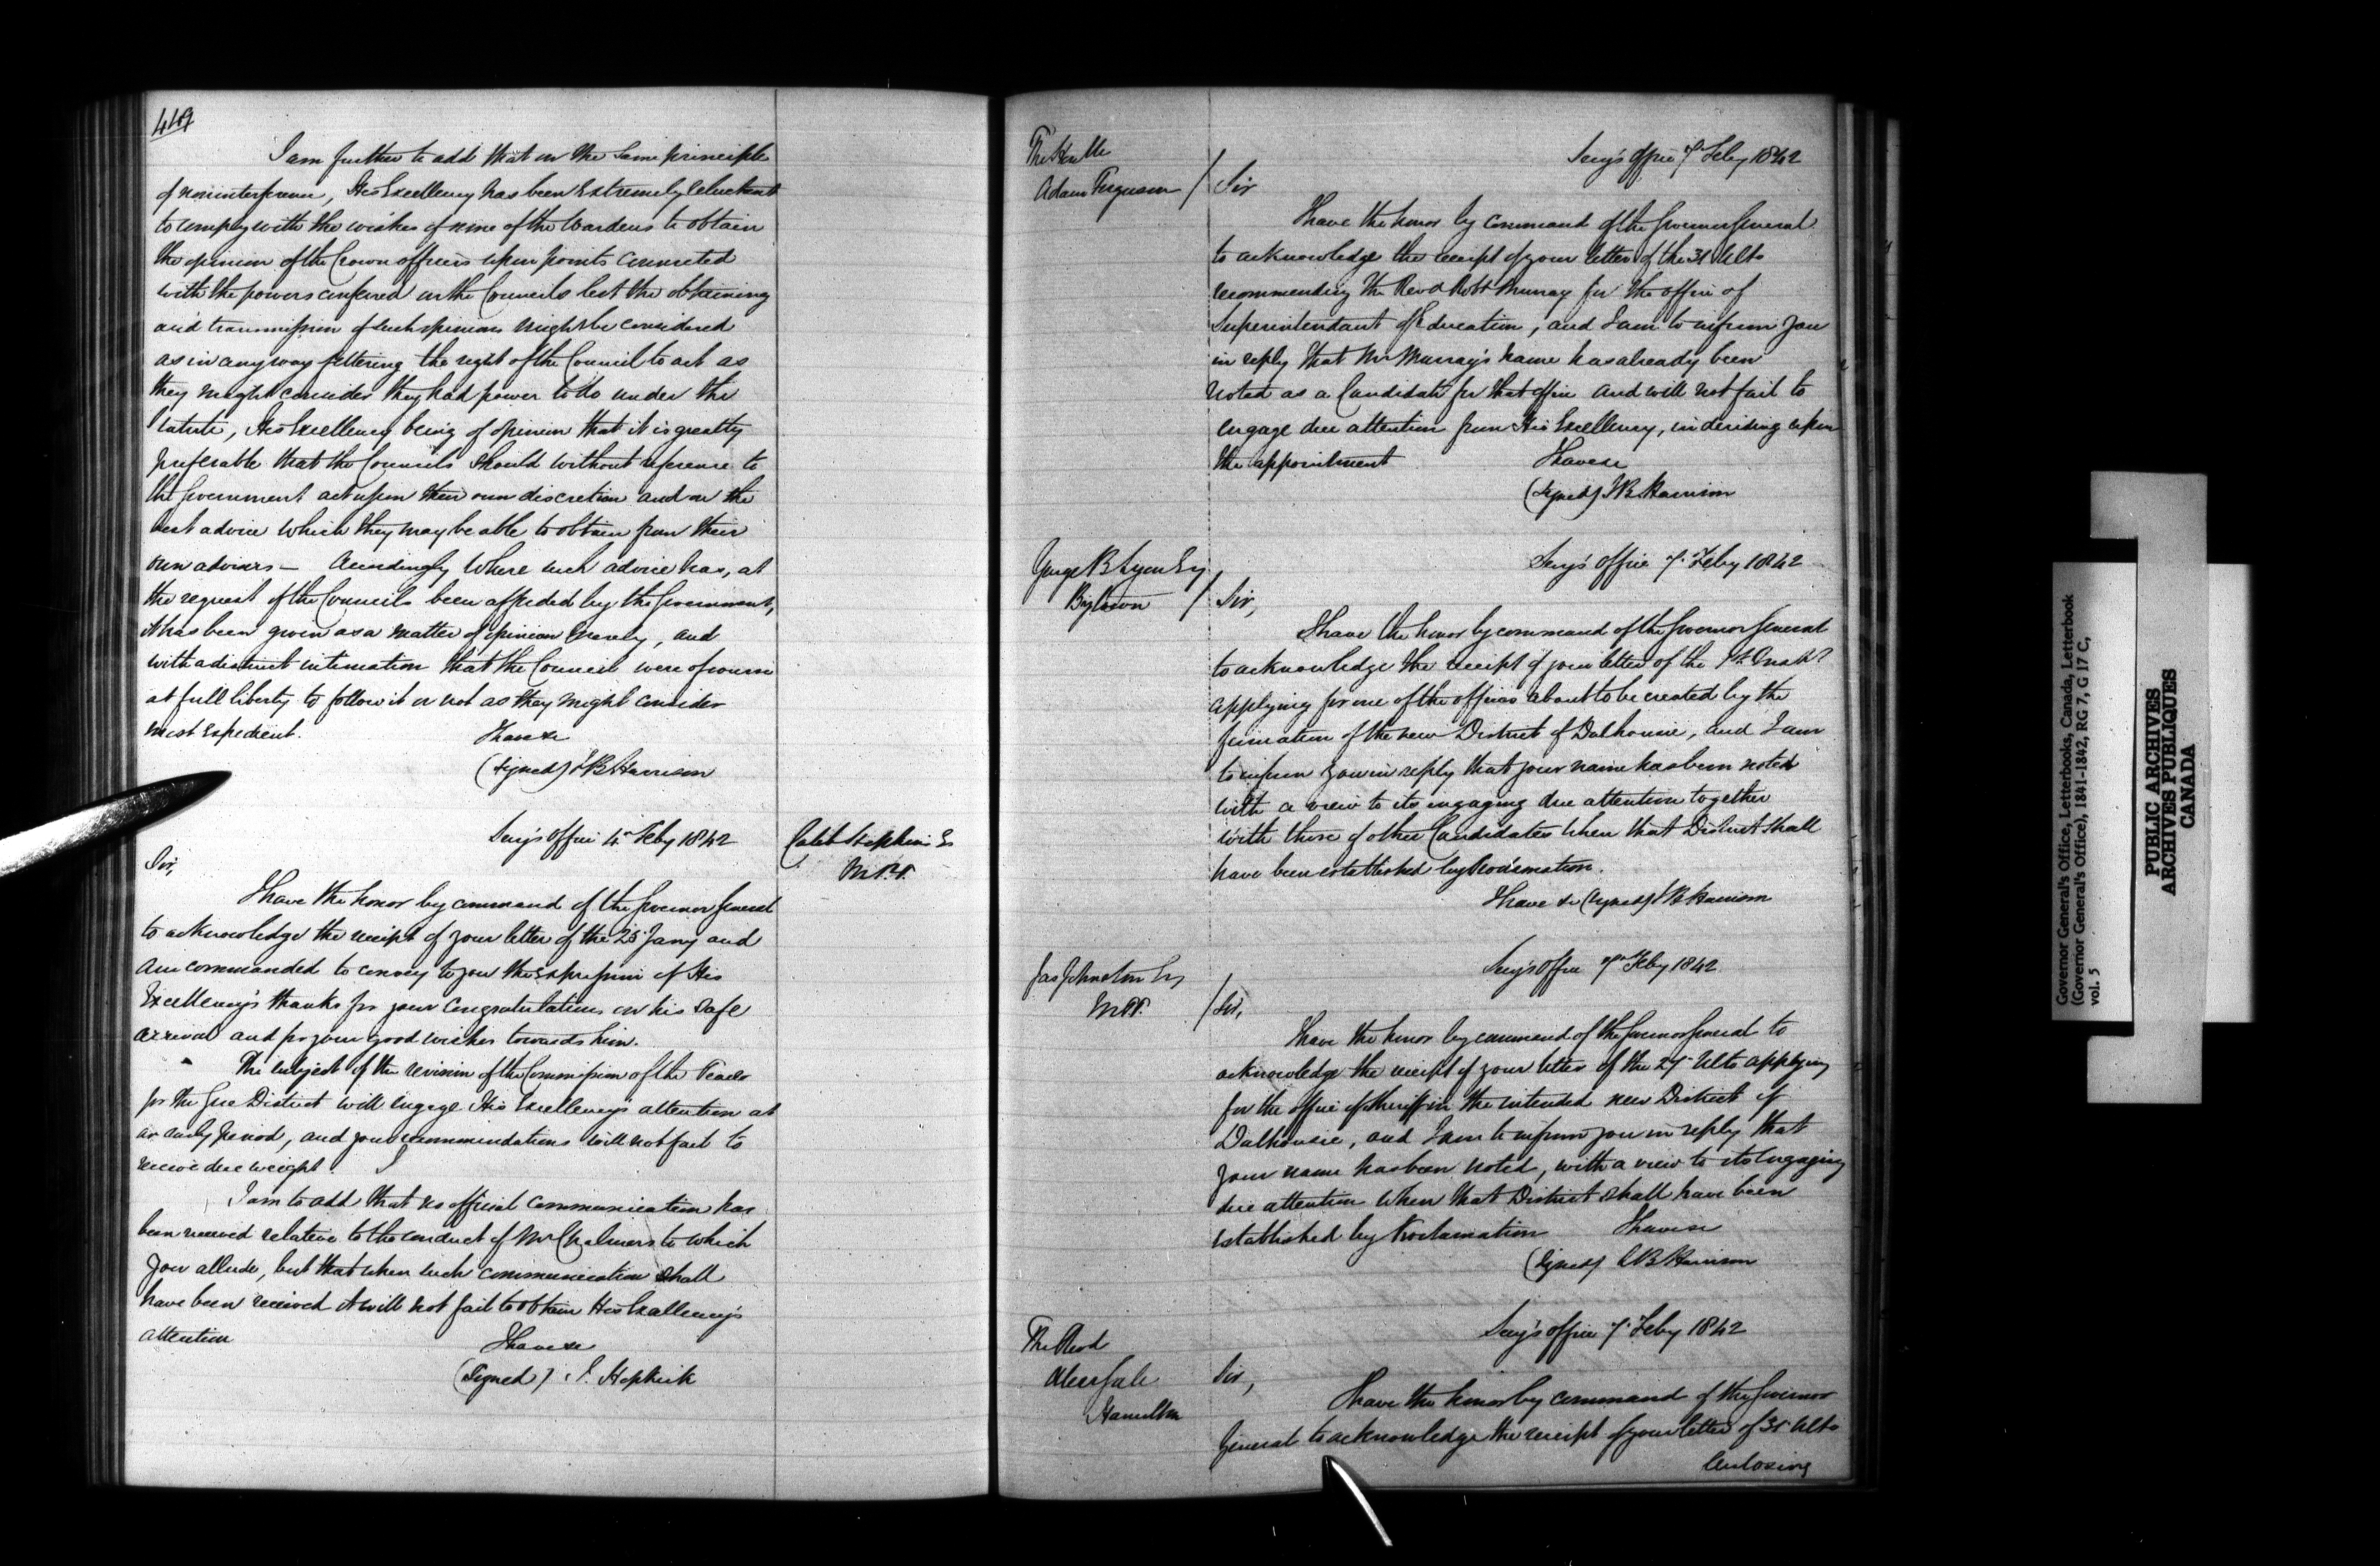 419
I am further to add that on the same principle
of noninterference, His Excellency has been extremely reluctant
to comply with the wishes of some of the Wardens to obtain
the opinion of the Crown officers upon points connected
with the powers conferred on the Councils lest the obtaining
and transmission of such opinions might be considered
as in any way fettering the right of the Council to act as
they might consider they had power to do under the
Statute, His Excellency being of opinion that it is greatly
preferable that the Councils should without reference to
the Government act upon their own discretion and on the
best advice which they may be able to obtain from their
own advisers — Accordingly where such advice has, at
the request of the Councils been afforded by the Government,
it has been given as a matter of opinion merely, and
with a distinct intimation that the Council were of course
at full liberty to follow it or not as they might consider
most expedient.
I have &c
(Signed) S B Harrison
Secy's Office 4 Feby 1842
Caleb Hopkins E
M.P.P.
Sir,
I have the honor by command of the Governor General
to acknowledge the receipt of your letter of the 25 Jany and
am commanded to convey to you the expression of His
Excellency's thanks for your congratulations on his safe
arrival and for your good wishes towards him.
The subject of the revision of the Commission of the Peace
for the Gore District will engage His Excellency's attention at
an early period, and your recommendations will not fail to
receive due weight.
I am to add that no official communication has
been received relative to the conduct of Mr Chalmers to which
you allude, but that when such communication shall
have been received it will not fail to obtain His Excellency's
attention
I have &c
(Signed) J. Hopkirk
The Honble
Adam Ferguson /
Secy's Office 7 Feby 1842
Sir
I have the honor by command of the Governor General
to acknowledge the receipt of your letter of the 31 Ulto
recommending the Revd Robt Murray for the office of
Superintendant of Education, and I am to inform you
in reply that Mr Murray's name has already been
noted as a Candidate for that office and will not fail to
engage due attention from His Excellency, in deciding upon
the appointment
I have &c
(Signed) S B Harrison
George B Lyon Esq
Bytown /
Secy's Office 7 Feby 1842
Sir,
I have the honor by command of the Governor General
to acknowledge the receipt of your letter of the 1st Inst
applying for one of the offices about to be created by the
formation of the new District of Dalhousie, and I am
to inform you in reply that your name has been noted
with a view to its engaging due attention together
with those of other Candidates when that District shall
have been established by Proclamation.
I have &c (Signed) S B Harrison
Jas Johnston Esq
M.P.P. /
Secy's Office 7 Feby 1842
Sir,
I have the honor by command of the Governor General to
acknowledge the receipt of your letter of the 27 Ulto applying
for the office of Sheriff in the intended new District of
Dalhousie, and I am to inform you in reply that
your name has been noted, with a view to its engaging
due attention when that District shall have been
established by Proclamation
I have &c
(Signed) S B Harrison
The Revd
Alexr Gale
Hamilton
Secy's Office 7 Feby 1842
Sir,
I have the honor by command of the Governor
General to acknowledge the receipt of your letter of 31 Ulto
Enclosing
Governor General's Office, Letterbooks, Canada, Letterbook
(Governor General's Office), 1841-1842, RG 7, G 17 C,
vol. 5
PUBLIC ARCHIVES
ARCHIVES PUBLIQUES
CANADA